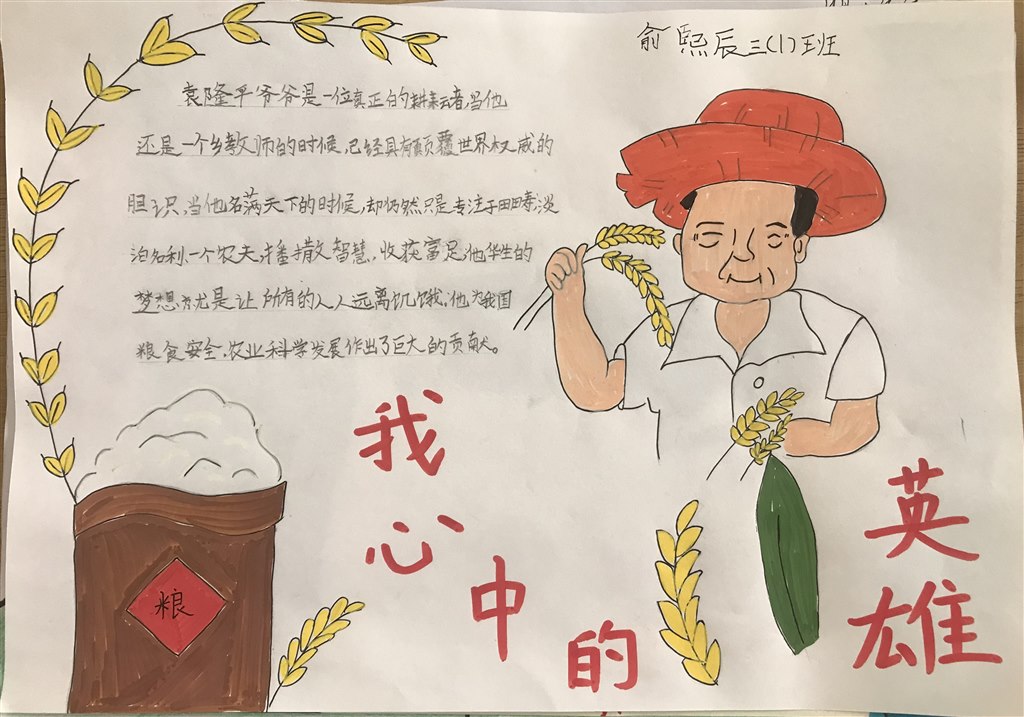 俞熙辰 三(1)班
袁隆平爷爷是一位真正的耕耘者,当他
还是一个乡教师的时候,已经具有颠覆世界权威的
胆识,当他名满天下的时候,却仍然只是专注于田畴,淡
泊名利一个农夫,播撒智慧,收获富足,他毕生的
梦想就是让所有的人人远离饥饿。他为我国
粮食安全,农业科学发展作出了巨大的贡献。
我心中的英雄
粮